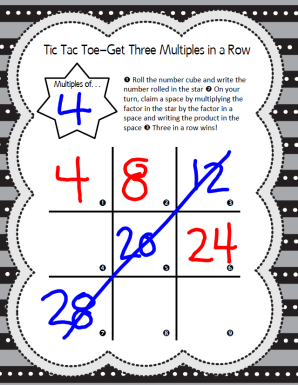 Tic Tac Toe–Get Three Multiples in a Row
Multiples of...
4
❶ Roll the number cube and write the
number rolled in the star ❷ On your
turn, claim a space by multiplying the
factor in the star by the factor in a
space and writing the product in the
space ❸ Three in a row wins!
4 8 12
❶ ❷ ❸
20 24
❹ ❺ ❻
28
❼ ❽ ❾